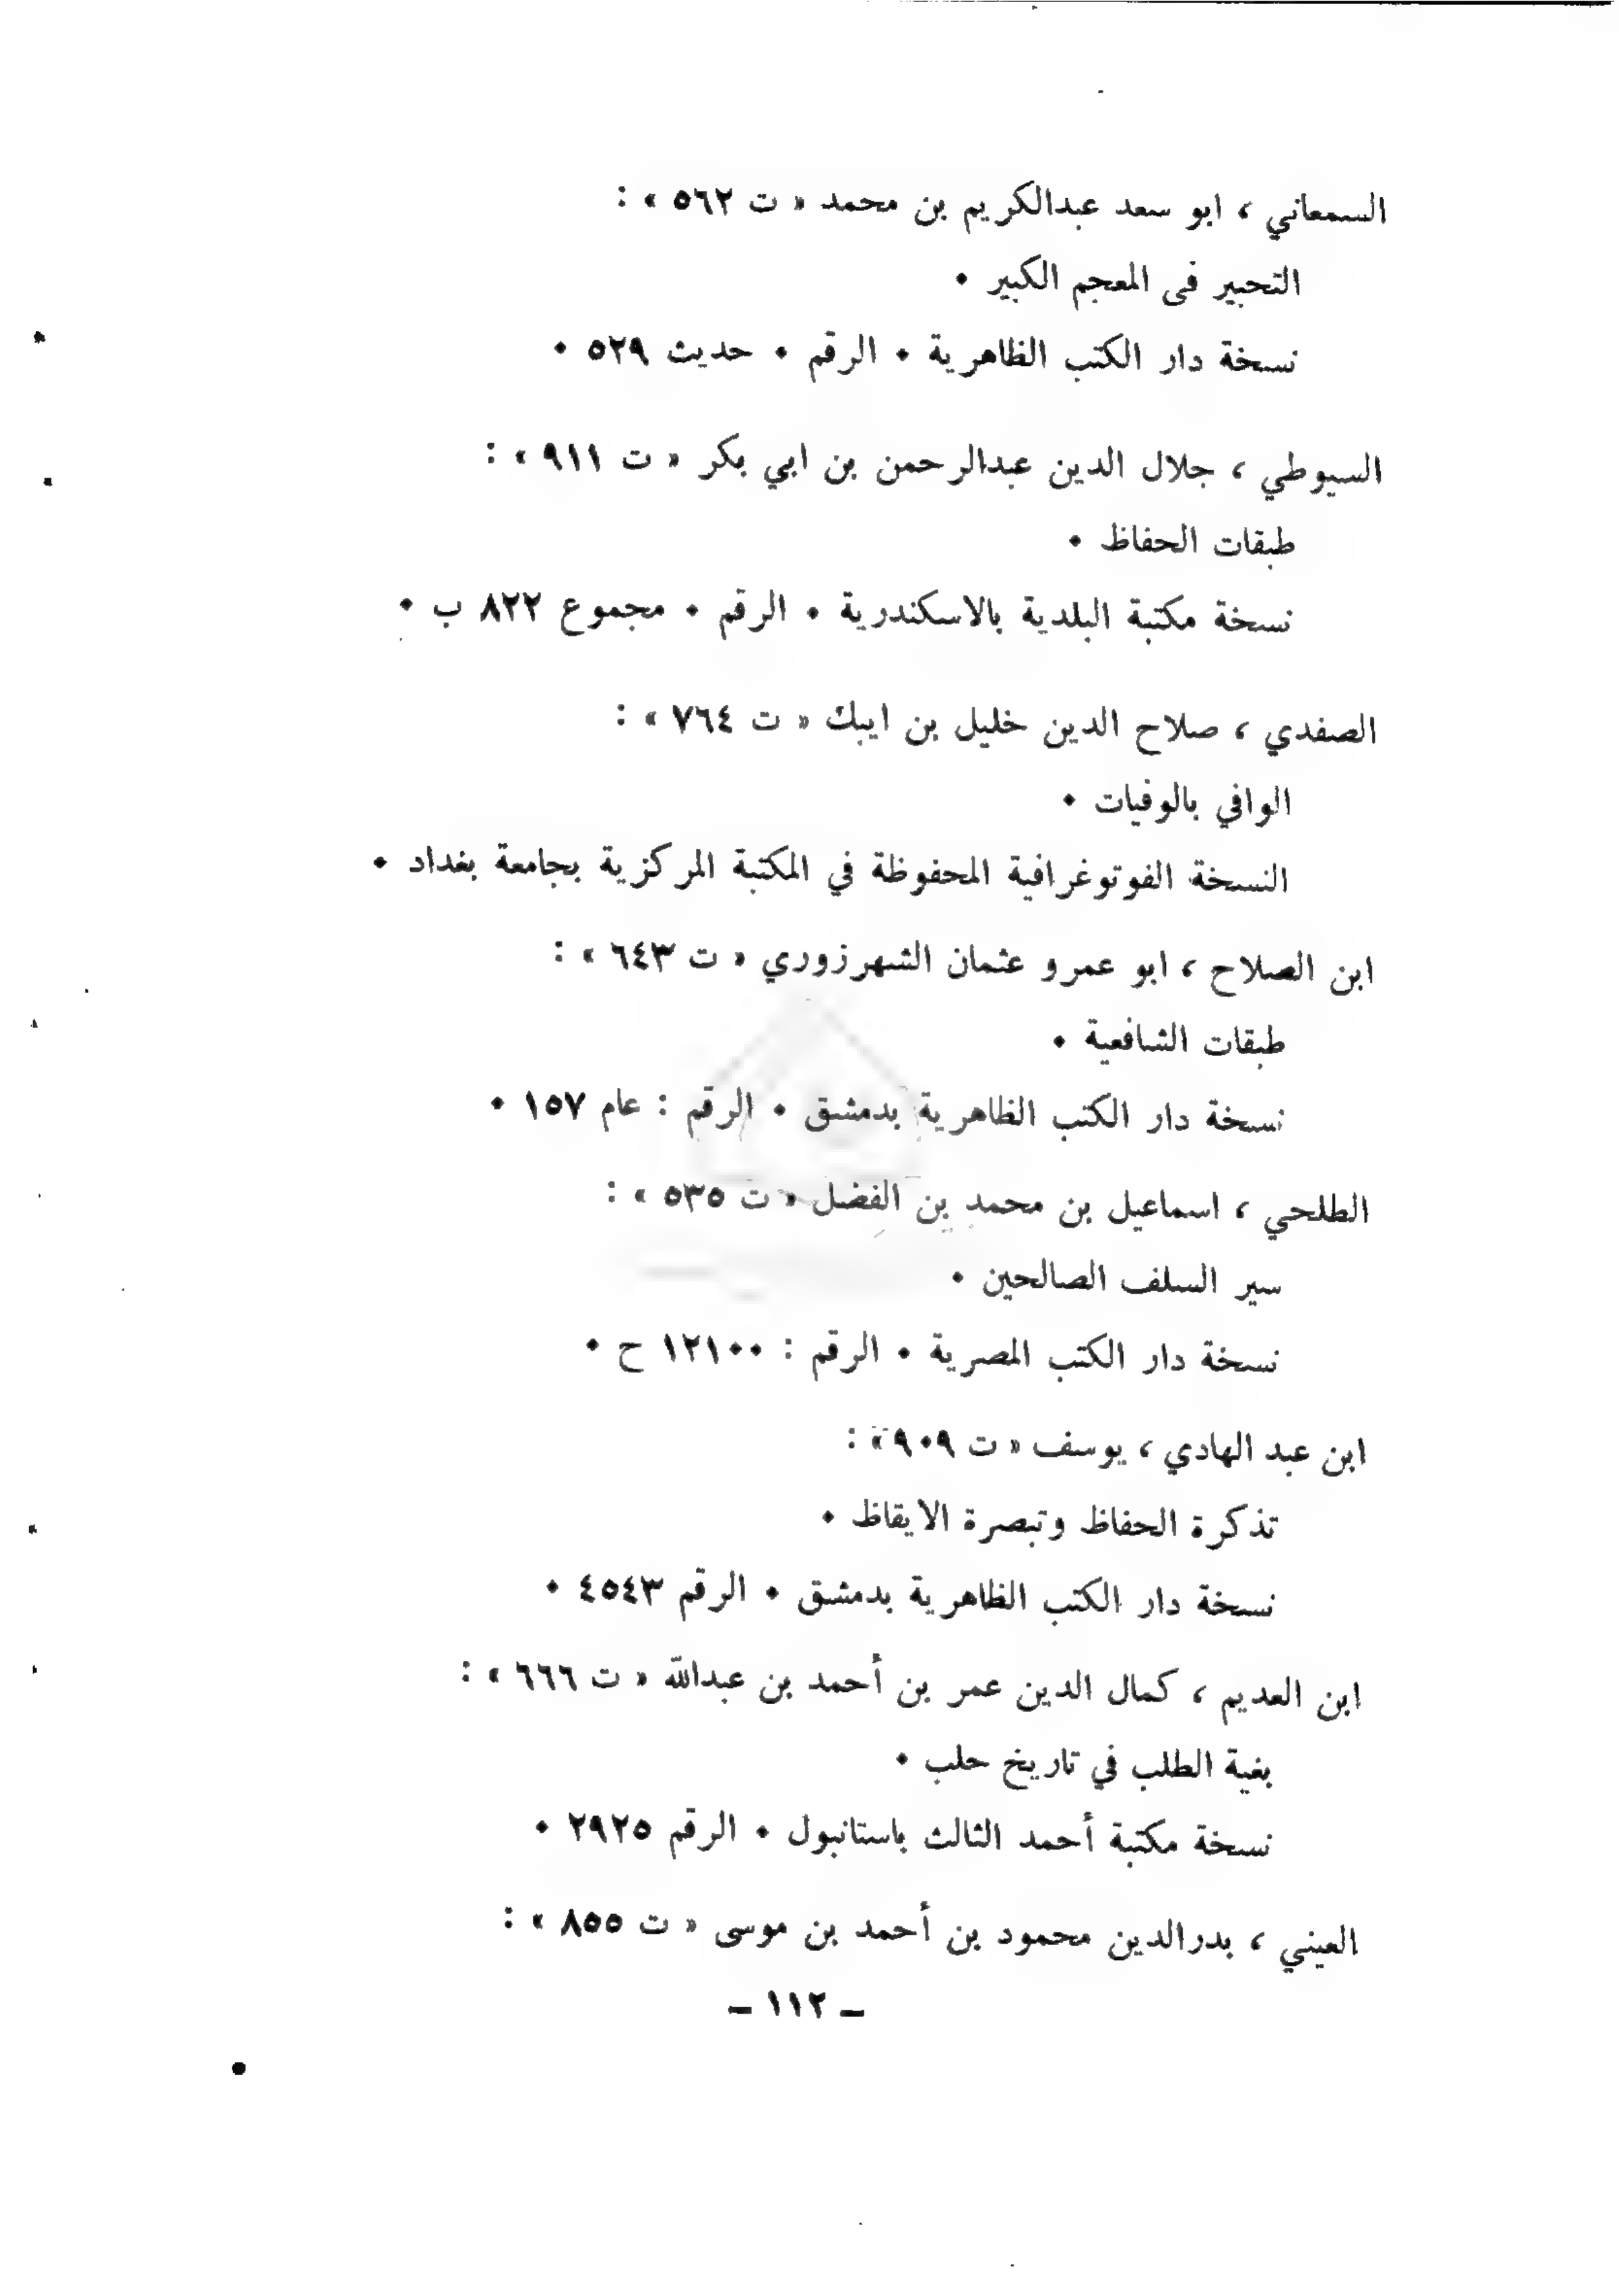 السمعاني ، ابو سعد عبدالكريم بن محمد « ت ٥٦٢ » :
التحبير فى المعجم الكبير ٠
نسخة دار الكتب الظاهرية ٠ الرقم ٠ حديث ٥٢٩ ٠
السيوطي ، جلال الدين عبدالرحمن بن ابي بكر « ت ٩١١ » :
طبقات الحفاظ ٠
نسخة مكتبة البلدية بالاسكندرية ٠ الرقم ٠ مجموع ٨٢٢ ب ٠
الصفدي ، صلاح الدين خليل بن ايبك « ت ٧٦٤ » :
الوافي بالوفيات ٠
النسخة الفوتوغرافية المحفوظة في المكتبة المركزية بجامعة بغداد ٠
ابن الصلاح ، ابو عمرو عثمان الشهرزوري « ت ٦٤٣ » :
طبقات الشافعية ٠
نسخة دار الكتب الظاهرية بدمشق ٠ الرقم : عام ١٥٧ ٠
الطلحي ، اسماعيل بن محمد بن الفضل « ت ٥٣٥ » :
سير السلف الصالحين ٠
نسخة دار الكتب المصرية ٠ الرقم : ١٢١٠٠ ح ٠
ابن عبد الهادي ، يوسف « ت ٩٠٩ » :
تذكرة الحفاظ وتبصرة الايقاظ ٠
نسخة دار الكتب الظاهرية بدمشق ٠ الرقم ٤٥٤٣ ٠
ابن العديم ، كمال الدين عمر بن أحمد بن عبدالله « ت ٦٦٦ » :
بغية الطلب في تاريخ حلب ٠
نسخة مكتبة أحمد الثالث باستانبول ٠ الرقم ٢٩٢٥ ٠
العيني ، بدرالدين محمود بن أحمد بن موسى « ت ٨٥٥ » :
ــ ١١٢ ــ